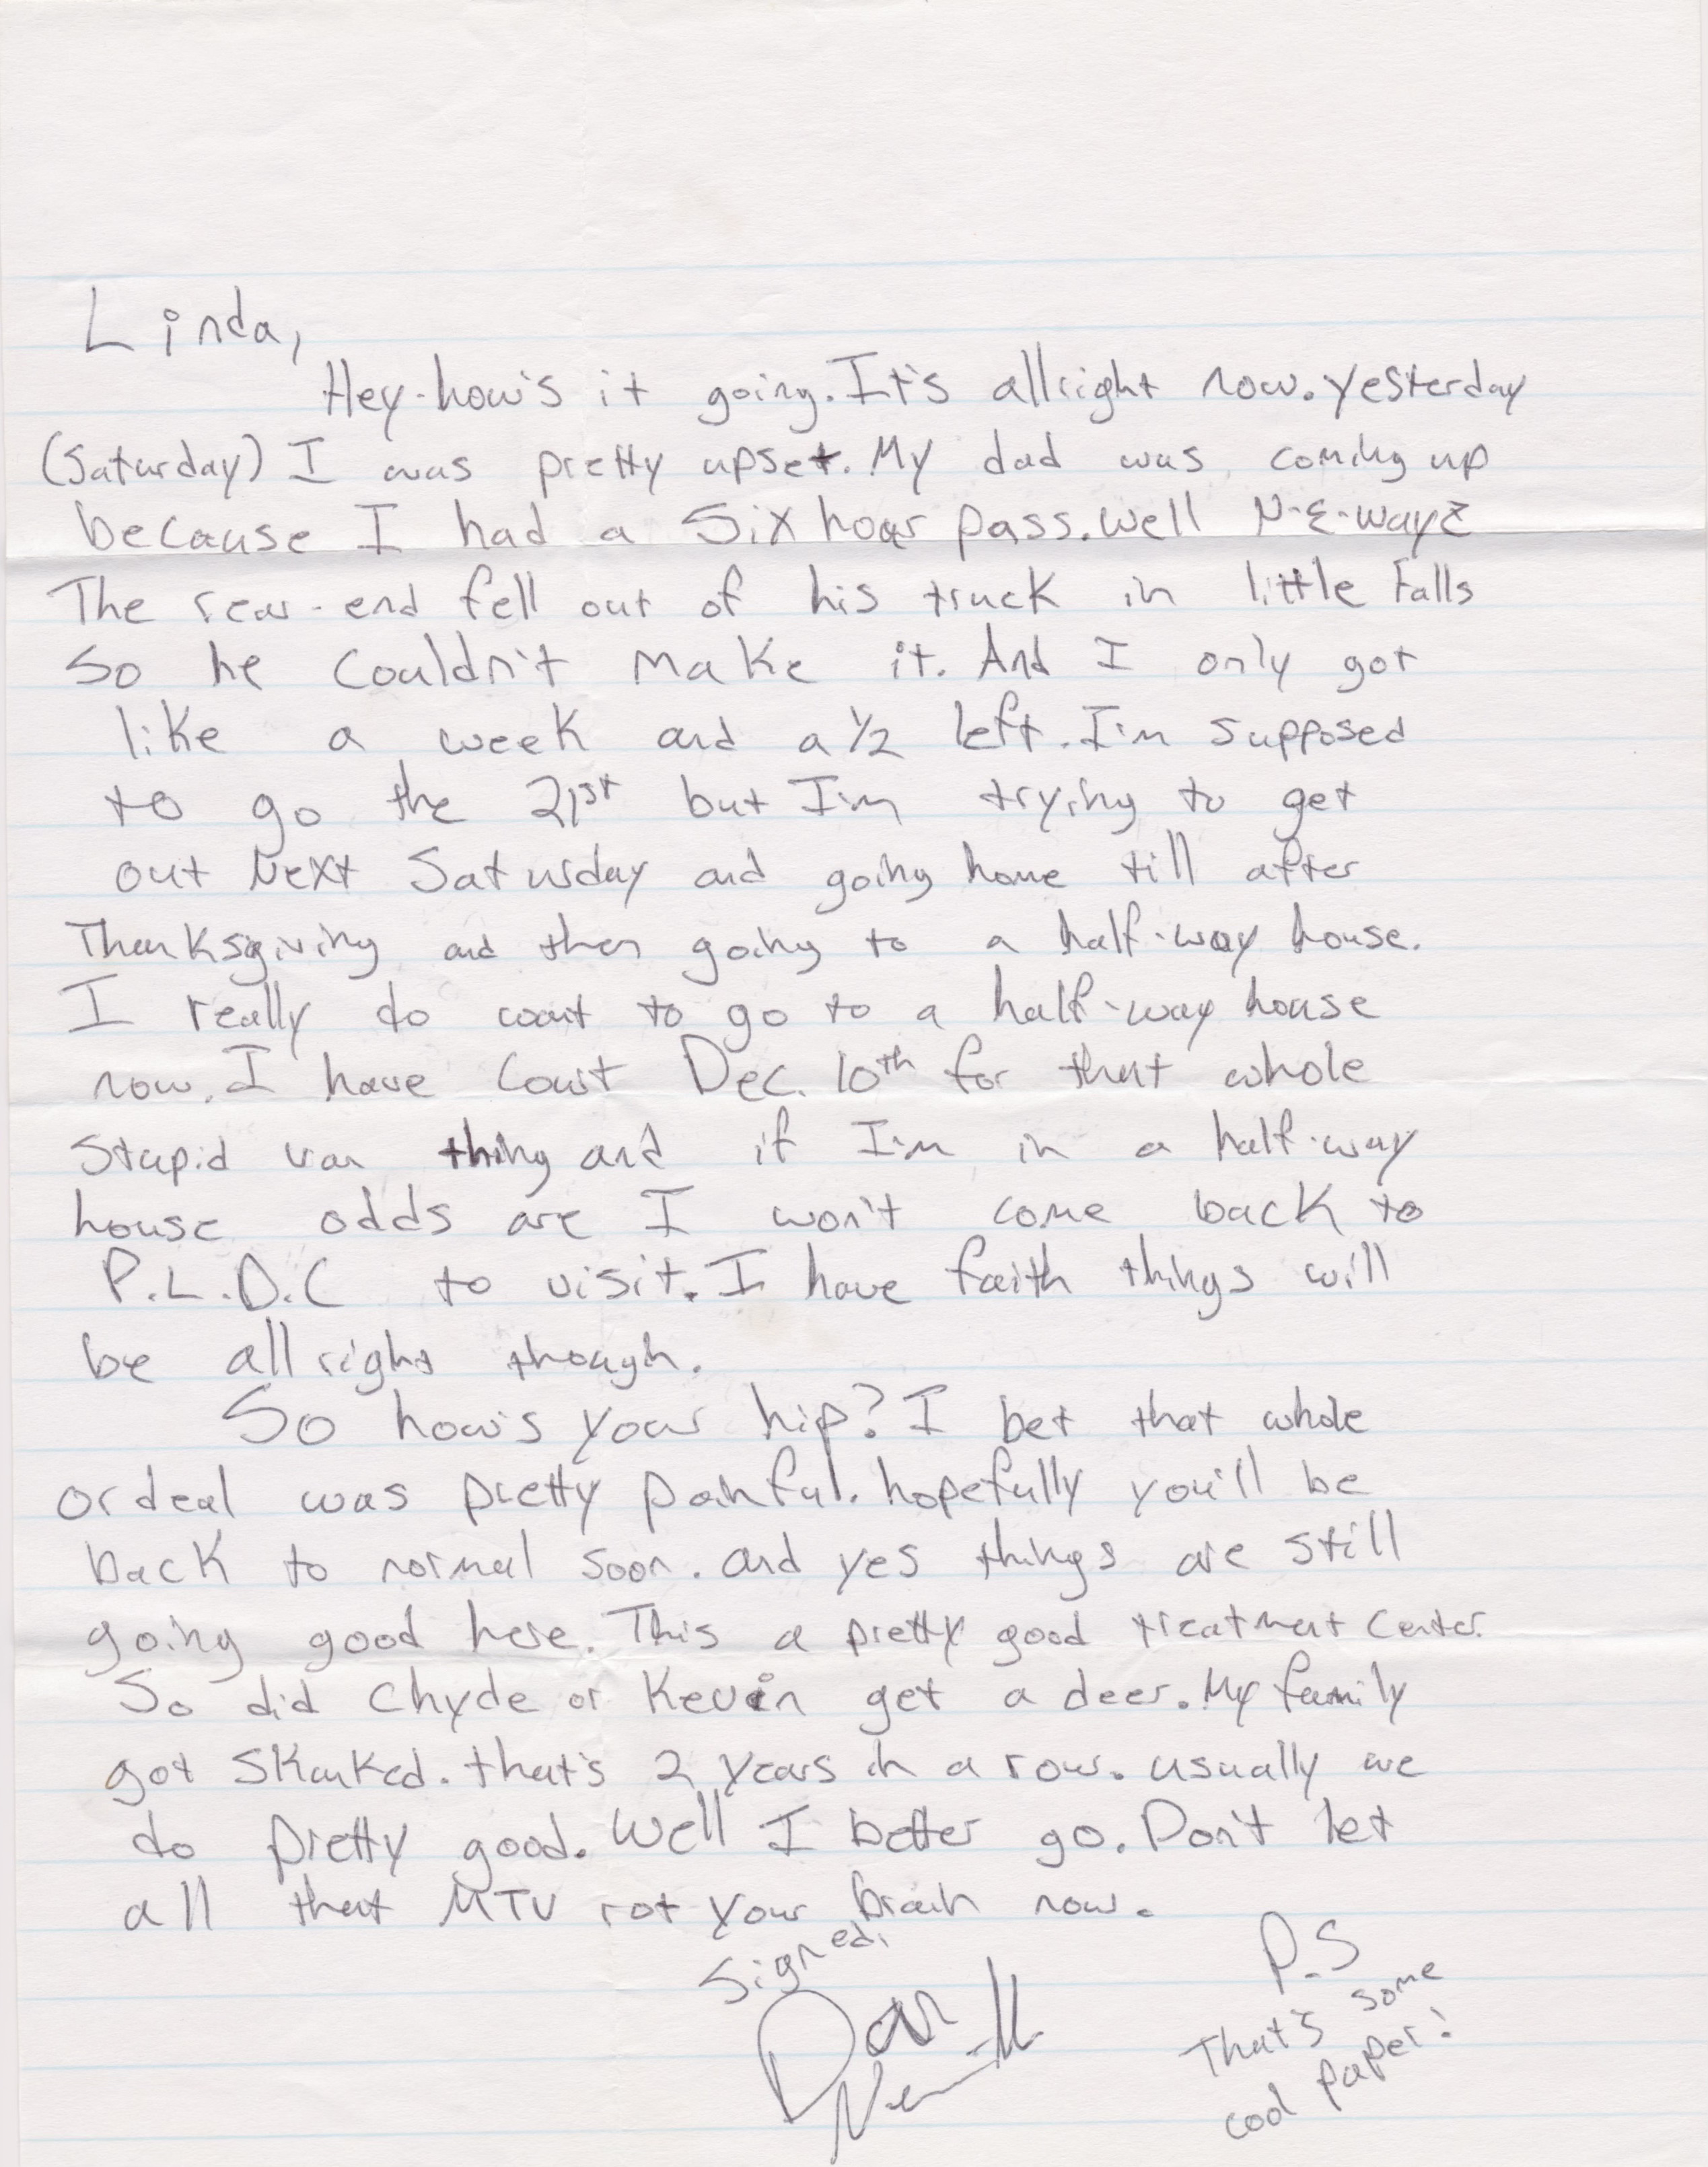 Linda,
Hey-how's it going. It's allright now. yesterday
(Saturday) I was pretty upset. My dad was coming up
because I had a Six hour pass. Well N-E-wayz
The rear-end fell out of his truck in little Falls
So he couldn't make it. And I only got
like a week and a 1/2 left. I'm supposed
to go the 21st but I'm trying to get
out Next Saturday and going home till after
Thanksgiving and then going to a half-way house.
I really do want to go to a half-way house
now. I have Court Dec. 10th for that whole
Stupid van thing and if I'm in a half-way
house odds are I won't come back to
P.L.D.C to visit. I have faith things will
be all right though.
So how's your hip? I bet that whole
ordeal was pretty painful. hopefully you'll be
back to normal soon. and yes things are still
going good here. This a pretty good treatment center.
So did Chyde or Kevin get a deer. My family
got Skunked. that's 2 years in a row. usually we
do pretty good. Well I better go. Don't let
all that MTV rot your brain now.
Signed,
Dan
P.S
That's some
cool paper!